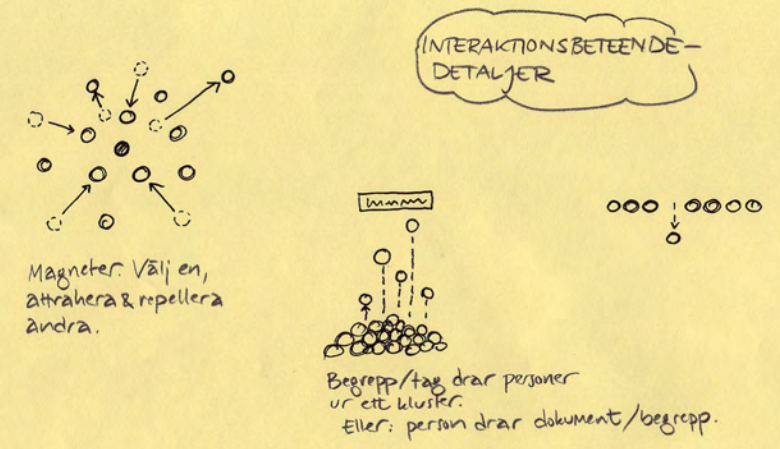 INTERAKTIONSBETEENDE-
DETALJER
Magneter. Välj en,
attrahera & repellera
andra.
Begrepp/tag drar personer
ur ett kluster.
Eller: person drar dokument/begrepp.